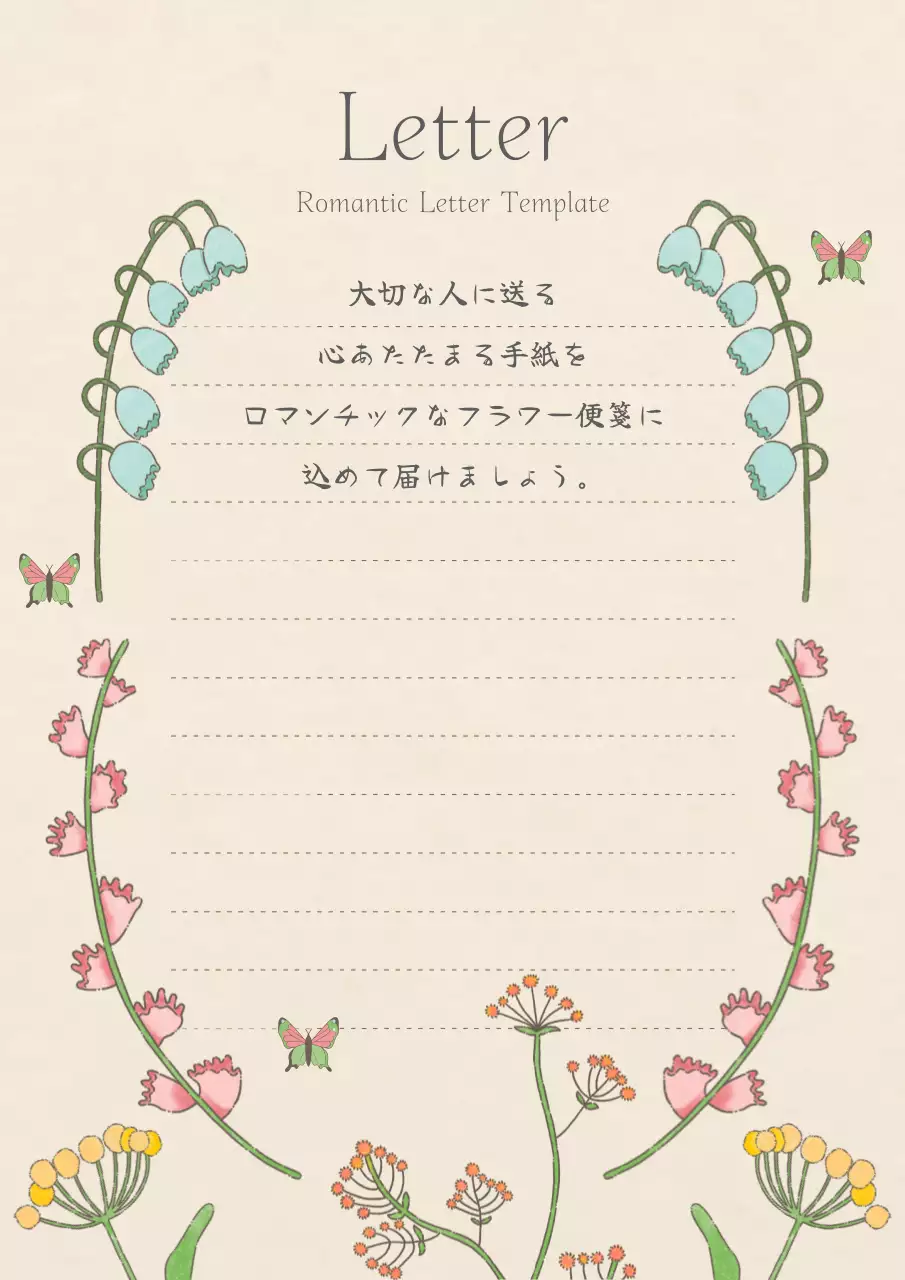 Letter
Romantic Letter Template
大切な人に送る
心あたたまる手紙を
ロマンチックなフラワー便箋に
込めて届けましょう。